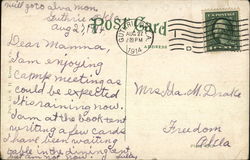 will go to Alva mon.
Guthrie, Okla
Aug 27, 
Post Card
GUTHRIE
AUG 27
8 PM
1914
ADDRESS
Dear Mamma,
I am enjoying
camp meeting as
could be expected
It is raining now.
I am at the book tent
writing a few cards
I have been waiting
table in the dining tent
but am not now
Mrs Ida M. Drake
Freedom
Okla